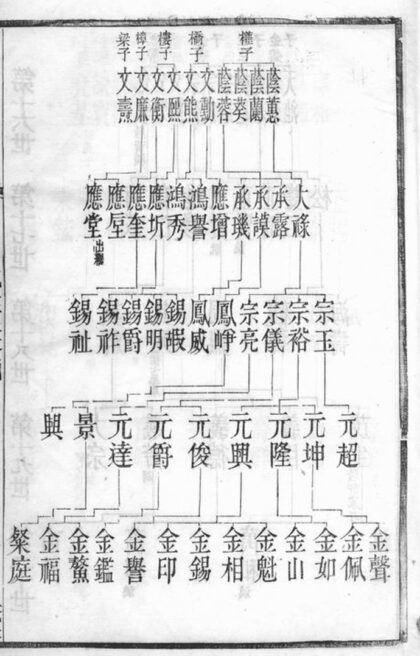 橋子
樓子
樟子
梁子
蔭蕙
蔭蘭
蔭葵
蔭蓉
文勳
文熊
文熙
文衡
文廉
文燾
大祿
承露
承謨
承璣
應增
鴻譽
鴻秀
應圻
應奎
應垕
應堂出繼
宗玉
宗裕
宗儀
宗亮
鳳崢
鳳威
錫嘏
錫明
錫爵
錫祚
錫祉
元超
元坤
元隆
元興
元俊
元爵
元達
景
興
金聲
金佩
金如
金山
金魁
金相
金錫
金印
金譽
金鑑
金鰲
金福
粲庭